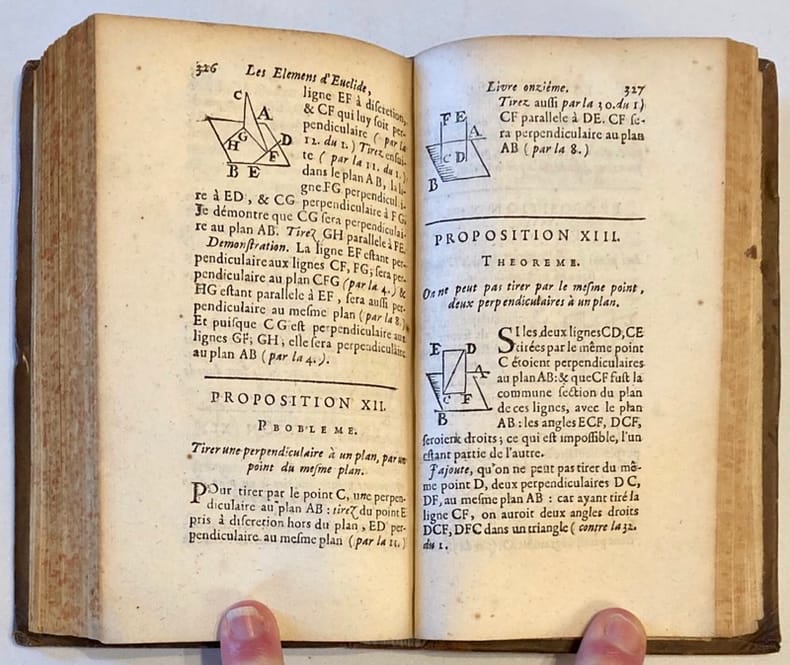 326 Les Elemens d'Euclide,
C
A
G
H
D
F
B E
ligne EF à discretion,
& CF qui luy soit per-
pendiculaire (par la
12. du 1.) Tirez ensui-
te (par la 11. du 1.)
dans le plan AB, la li-
gne FG perpendicul i-
re à ED, & CG perpendiculaire à FG.
Je démontre que CG sera perpendiculai-
re au plan AB. Tirez GH parallele à FE.
Demonstration. La ligne EF estant per-
pendiculaire aux lignes CF, FG; sera per-
pendiculaire au plan CFG (par la 4.) &
HG estant parallele à EF, sera aussi per-
pendiculaire au mesme plan (par la 8.)
Et puisque CG est perpendiculaire aux
lignes GF; GH; elle sera perpendiculaire
au plan AB (par la 4.).
PROPOSITION XII.
PROBLEME.
Tirer une perpendiculaire à un plan, par un
point du mesme plan.
POur tirer par le point C, une perpen-
diculaire au plan AB: tirez du point E
pris à discretion hors du plan, ED per-
pendiculaire au mesme plan (par la 11.)
Livre onziéme. 327
F E
A
C D
B
Tirez aussi par la 30. du 1)
CF parallele à DE. CF se-
ra perpendiculaire au plan
AB (par la 8.)
PROPOSITION XIII.
THEOREME.
On ne peut pas tirer par le mesme point,
deux perpendiculaires à un plan.
E D
A
C F
B
SI les deux lignes CD, CE
tirées par le même point
C étoient perpendiculaires
au plan AB: & que CF fust la
commune section du plan
de ces lignes, avec le plan
AB: les angles ECF, DCF,
seroient droits; ce qui est impossible, l'un
estant partie de l'autre.
J'ajoute, qu'on ne peut pas tirer du mê-
me point D, deux perpendiculaires DC,
DF, au mesme plan AB: car ayant tiré la
ligne CF, on auroit deux angles droits
DCF, DFC dans un triangle (contre la 32.
du 1.